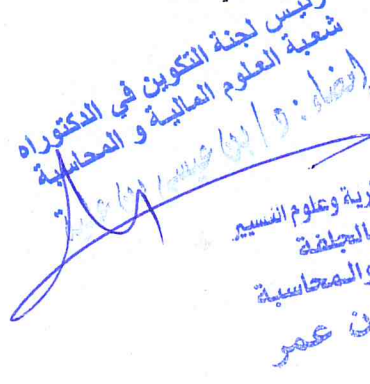 رئيس لجنة التكوين في الدكتوراه
شعبة العلوم المالية و المحاسبة
إمضاء : د / بن عيسى بن علية
رية وعلوم التسيير
بالجلفة
والمحاسبة
ن عمر